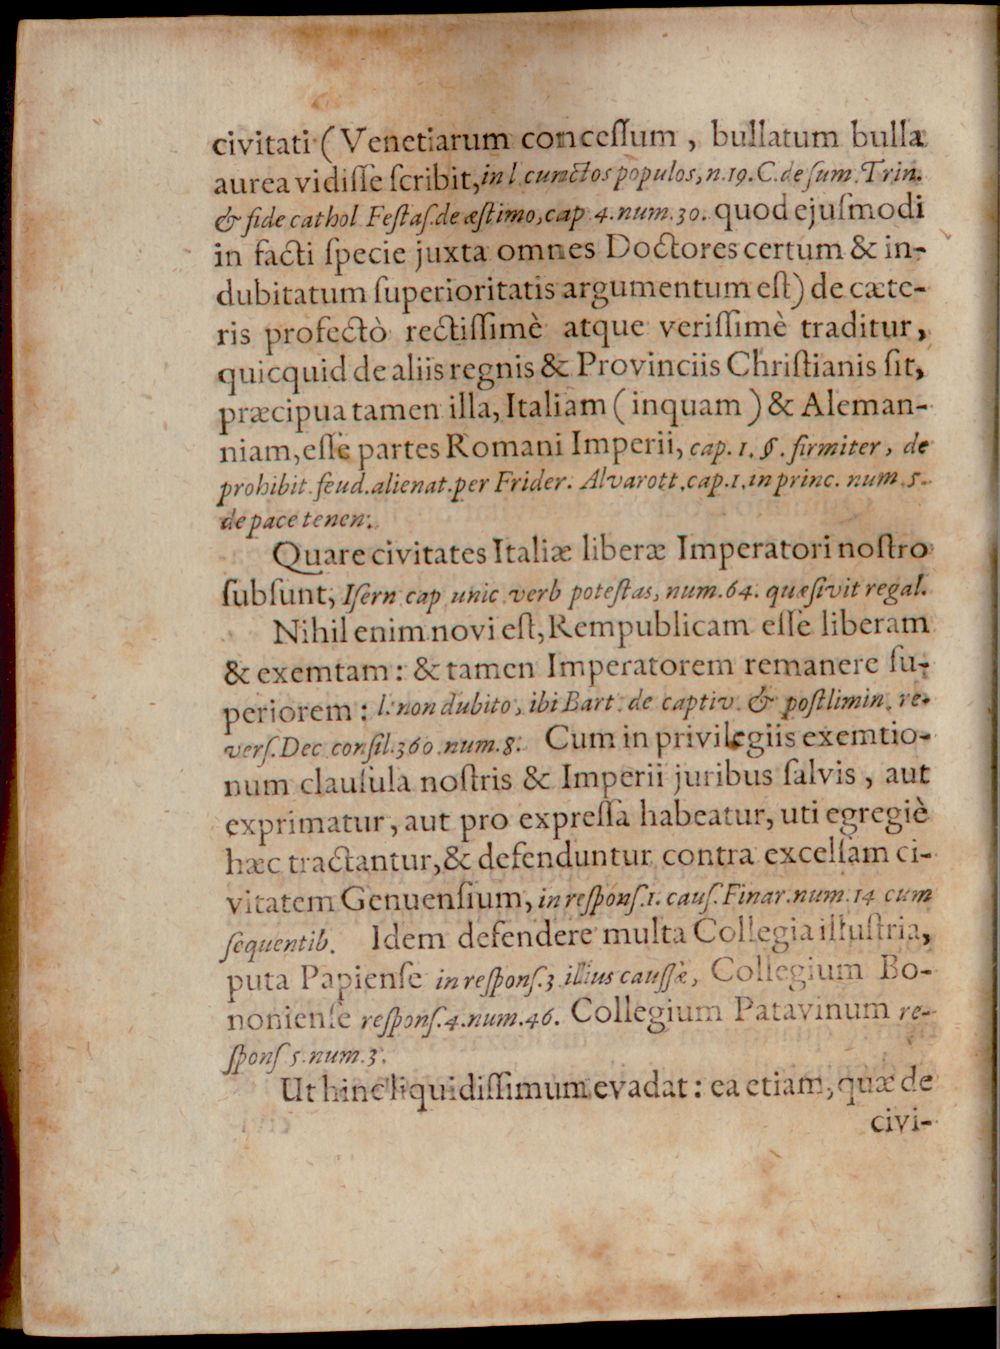 civitati (Venetiarum concessum, bullatum bulla
aurea vidisse scribit, in l cunctos populos, n. 19. C. de sum. Trin.
& fide cathol Festas. de æstimo, cap 4. num. 30. quod ejusmodi
in facti specie juxta omnes Doctores certum & in-
dubitatum superioritatis argumentum est) de cæte-
ris profectò rectissimè atque verissimè traditur,
quicquid de aliis regnis & Provinciis Christianis sit,
præcipua tamen illa, Italiam (inquam) & Aleman-
niam, esse partes Romani Imperii, cap. 1. §. firmiter, de
prohibit. feud. alienat. per Frider. Alvarott. cap. 1. in princ. num. 5.
de pace tenen.
Quare civitates Italiæ liberæ Imperatori nostro
subsunt, Isern cap unic verb potestas, num. 64. quæ sivit regal.
Nihil enim novi est, Rempublicam esse liberam
& exemtam: & tamen Imperatorem remanere su-
periorem: l. non dubito, ibi Bart. de captiv. & postlimin. re-
vers. Dec consil. 360. num. 8. Cum in privilegiis exemtio-
num clausula nostris & Imperii juribus salvis, aut
exprimatur, aut pro expressa habeatur, uti egregiè
hæc tractantur, & defenduntur contra excelsam ci-
vitatem Genuensium, in respons. 1. caus. Finar. num. 14 cum
sequentib. Idem defendere multa Collegia illustria,
puta Papiense in respons. 3 illius caussæ, Collegium Bo-
noniense respons. 4. num. 46. Collegium Patavinum re-
spons 5. num. 3.
Ut hinc liquidissimum evadat: ea etiam, quæ de
civi-